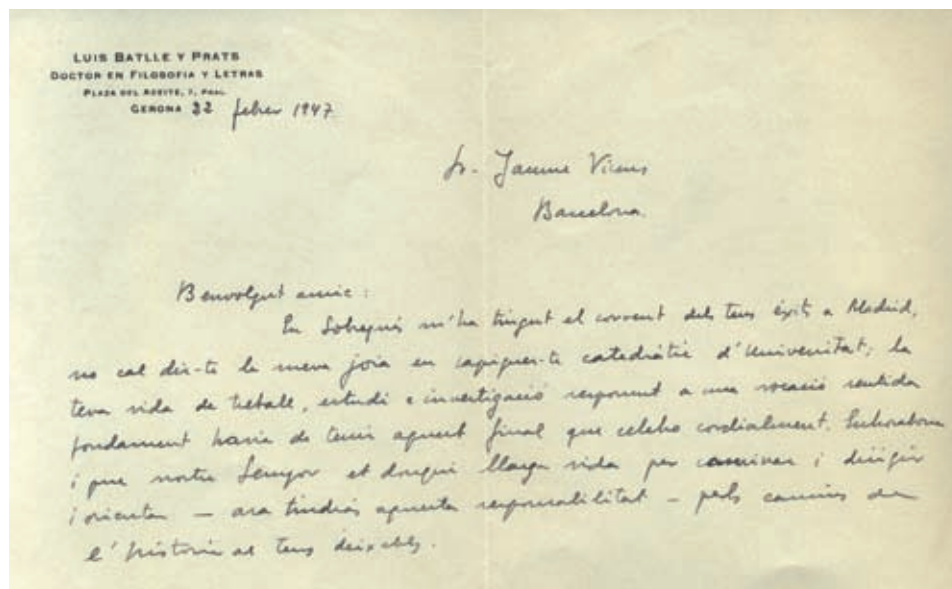 LUIS BATLLE Y PRATS
DOCTOR EN FILOSOFIA Y LETRAS
PLAZA DEL ACEITE, 7, PRAL.
GERONA 22 febrer 1947
Sr. Jaume Vicens
Barcelona.
Benvolgut amic:
En Sobrequés m'ha tingut al corrent dels teus éxits a Madrid,
no cal dir-te la meva joia en sapiguer-te catedràtic d'Universitat; la
teva vida de treball, estudi e investigació responent a una vocació sentida
fondament havia de tenir aquest final que celebro cordialment. Enhorabona
i que nostre Senyor et dongui llarga vida per caminar i dirigir
i orientar — ara tindràs aquesta responsabilitat — pels camins de
l'historia als teus deixebles.